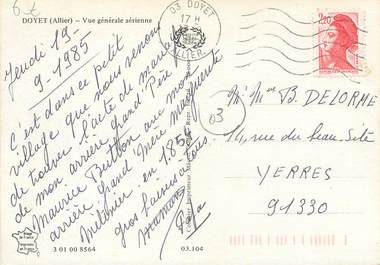 DOYET (Allier) - Vue générale aérienne
Jeudi 19-
9-1985
C'est dans ce petit
village que nous venons
de trouver l'acte de mariage
de mon arrière grand Père
Maurice Button avec mon
arrière Grand'Mère Marguerite
en 1854
gros baisers à tous
Maman
Papa
03 DOYET
17 H
ALLIER
2,20
M. Mme B. DELORME
14, rue du beau Site
YERRES
91330
03
3 01 00 8564
03.104